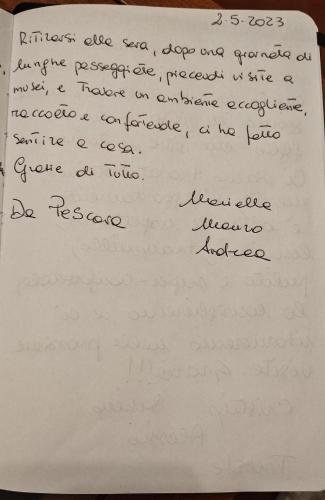 2-5-2023
Ritirarsi alla sera, dopo una giornata di
lunghe passeggiate, piacevoli visite a
musei, e trovare un ambiente accogliente,
raccolto e confortevole, ci ha fatto
sentire a casa.
Grazie di tutto.
Da Pescara
Mariella
Mauro
Andrea